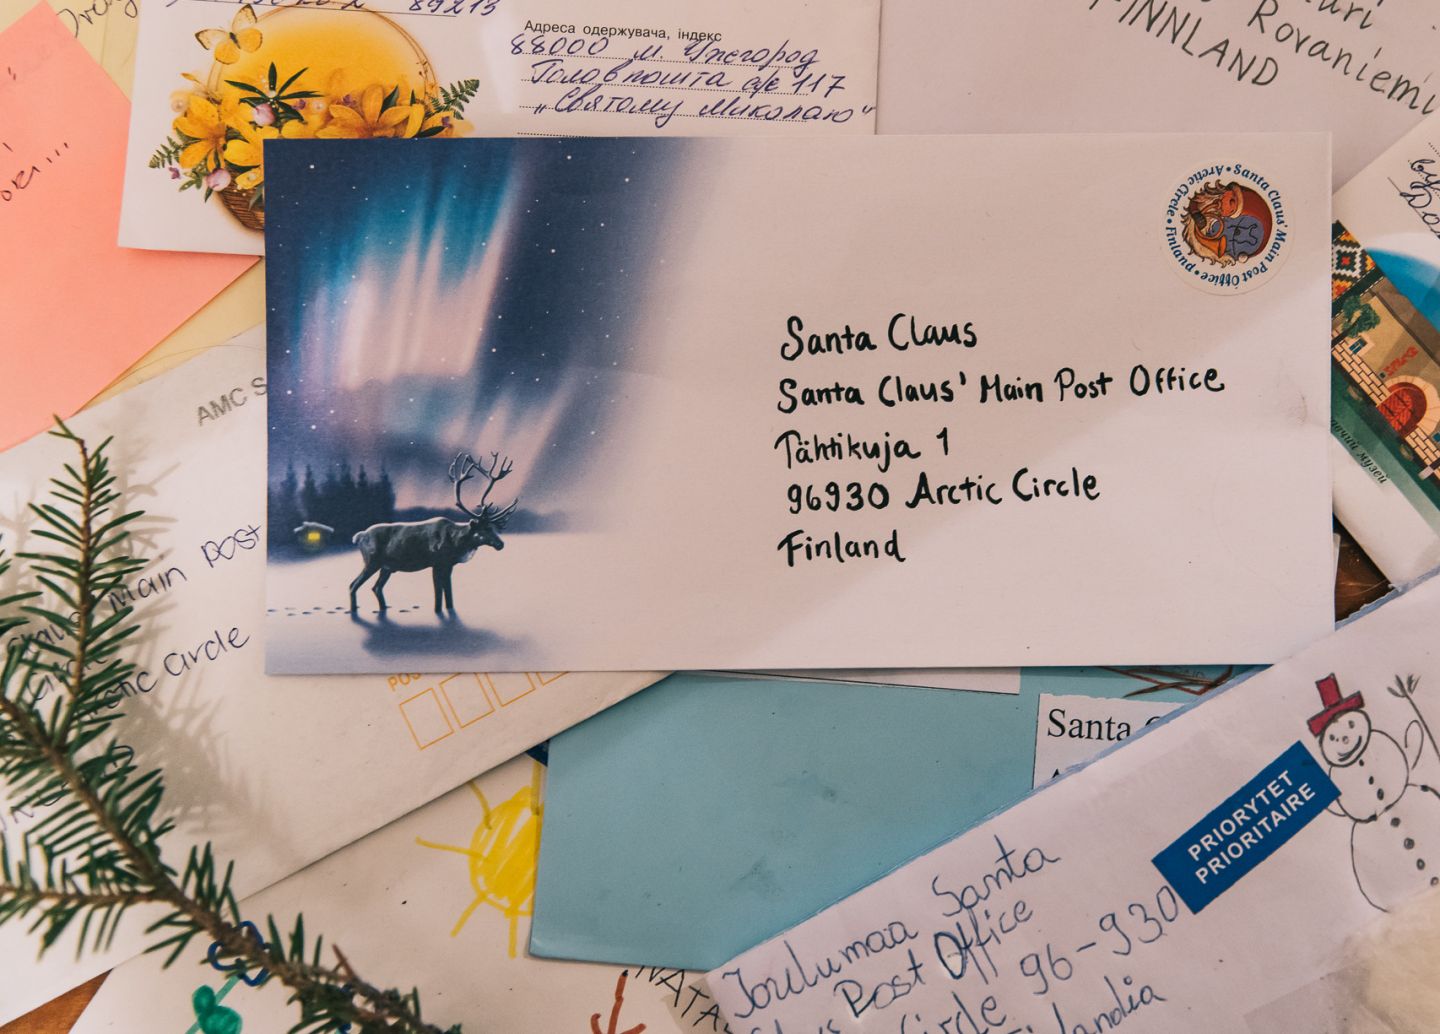 89213
Адреса одержувача, індекс
88000 м. Ужгород
Головпошта а/с 117
„Святому Миколаю“
Rovaniemi
FINNLAND
Santa Claus' Main Post Office • Finland • Arctic Circle •
Santa Claus
Santa Claus' Main Post Office
Tähtikuja 1
96930 Arctic Circle
Finland
AMC S
Main post
arcle
музей
Santa
PRIORYTET
PRIORITAIRE
Joulumaa Santa
Post Office
96-930
NATA